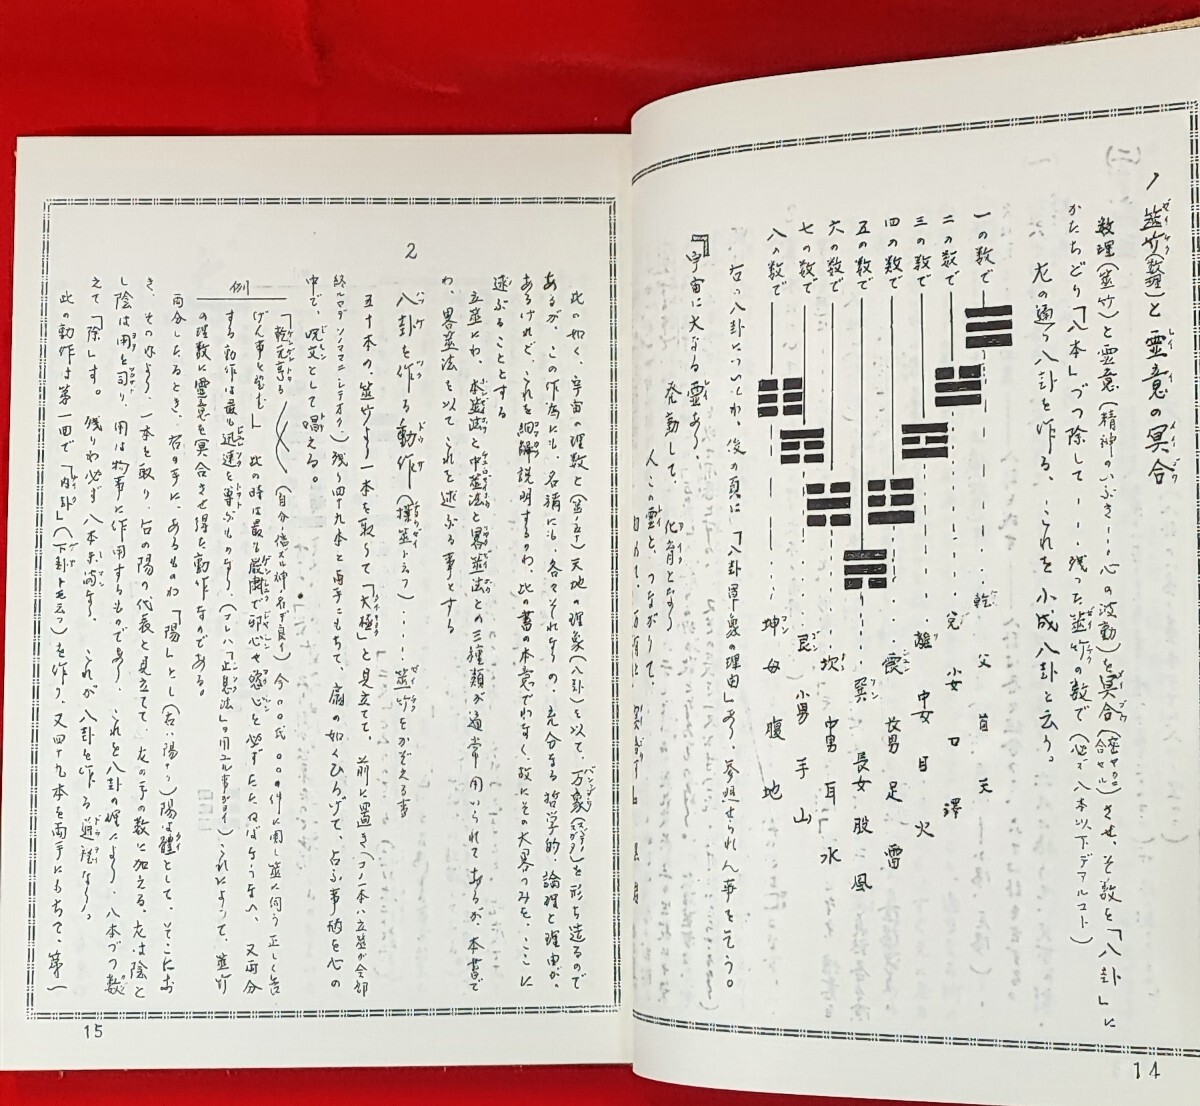 (二)
1 筮竹(数理)と霊意の冥合
数理(筮竹)と霊意(精神のいぶき…心の波動)を冥合(密ヤカニ合セル)させ、その数を「八卦」に
かたちどり「八本」づつ除して…残った筮竹の数で(必ズ八本以下デアルコト)
左の通り八卦を作る、これを小成八卦と云う。
一の数で 乾 父 首 天
二の数で 兌 少女 口 澤
三の数で 離 中女 目 火
四の数で 震 長男 足 雷
五の数で 巽 長女 股 風
六の数で 坎 中男 耳 水
七の数で 艮 小男 手 山
八の数で 坤 母 腹 地
右八卦については、後の頁に「八卦畢象の理由」あり、参照せられん事をそう。
「宇宙に大なる霊あり、
発動して、化育となり
人この霊と、つながりて、
14
此の如く、宇宙の理数と(筮立)天地の理象(八卦)を以て、万象(スベテノスガタ)を形ち造るので
あるが、この作為にも、名稱にも、各々それなりの、充分なる哲学的、論理と理由が、
あるけれど、これを細解説明するのわ、此の書の本意でわなく、故にその大畧のみを、ここに
述ぶることとする
立筮にわ、本筮法と中筮法と畧筮法との三種類が通常用いられてあるが、本書で
わ、畧筮法を以てこれを述ぶる事とする
2 八卦を作る動作(揲筮ト云フ)……筮竹をかぞえる事
五十本の、筮竹より一本を取りて「太極」と見立てて、前に置き(コノ一本ハ立筮が全部
終ルマデソノママニシテオク)残り四十九本を両手にもちて、扇の如くひらげて、占ふ事柄を心の
中で、呪文として唱える。
例
「乾元亨る (自分ノ信ズル神名ず良イ)今○○氏 ○○○の件に関し筮に伺う正しく告
げん事を望む」此の時は最も厳粛で邪心や慾心を必ずたたねばならない、又両分
する動作は最も迅速を尊ぶものなり、(コレハ「止息法」ヲ用ユル事がヨイ)これによって、筮竹
の理数に霊意を冥合させ得た動作なのである。
両分したるとき、右の手に、あるものわ「陽」とし(右ハ陽ナリ)陽は體として、そこにお
き、その内より、一本を取り右の陽の代表と見立てて、左の手の数に加える、左は陰と
し陰は用を司り、用は物事に作用するものであり、これを八卦の理により、八本づつ数
えて「除」す。残りわ必ず八本未満なり、これが八卦を作る過程なり。
此の動作は第一回で「内卦」(下卦トモ云フ)を作り、又四十九本を両手にもちて、第一
15